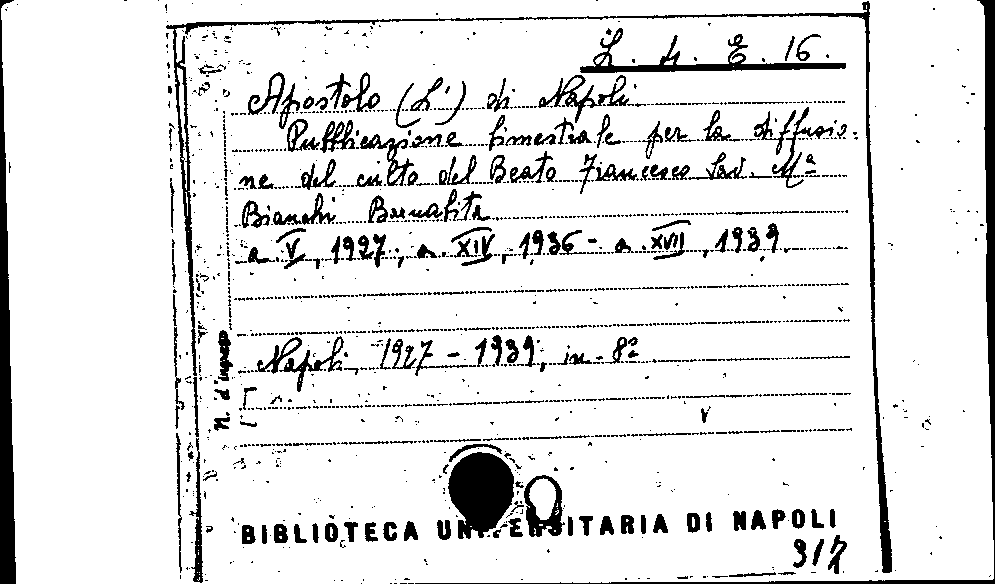 L. 4. E. 16.
Apostolo (L') di Napoli.
Pubblicazione bimestrale per la diffusio-
ne del culto del Beato Francesco Sav. Mª
Bianchi Barnabita
a. V, 1927; a. XIV, 1936 - a. XVII, 1939.
Napoli, 1927 - 1939, in-8º
N. d'ingresso
V
BIBLIOTECA UNIVERSITARIA DI NAPOLI